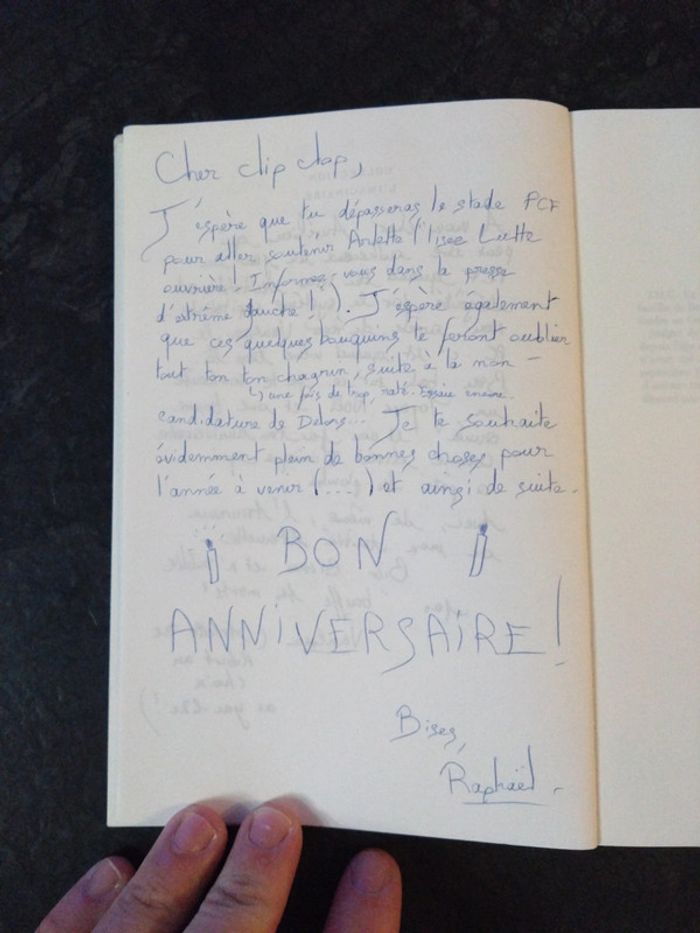 Cher clip clap,
J'espère que tu dépasseras le stade PCF
pour aller soutenir Arlette l'lisee Lutte
ouvrière ! Informez-vous dans la presse
d'extrême gauche !). J'espère également
que ces quelques bouquins te feront oublier
tout ton ton chagrin, suite à la non-
↳ une fois de trop, raté. Essaie encore.
candidature de Delors... Je te souhaite
évidemment plein de bonnes choses pour
l'année à venir (...) et ainsi de suite.
BON
ANNIVERSAIRE !
Bises,
Raphaël.